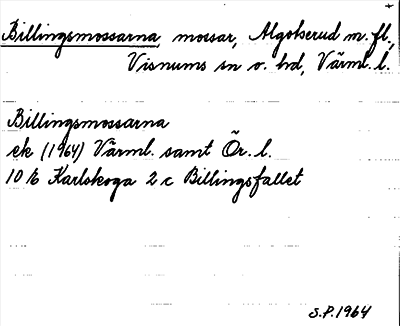 Billingsmossarna, mossar, Algotserud m. fl.,
Visnums sn o. hd, Värml. l.
Billingsmossarna
ek (1964) Värml. samt Ör. l.
10 E Karlskoga 2 c Billingsfallet
S.P. 1964